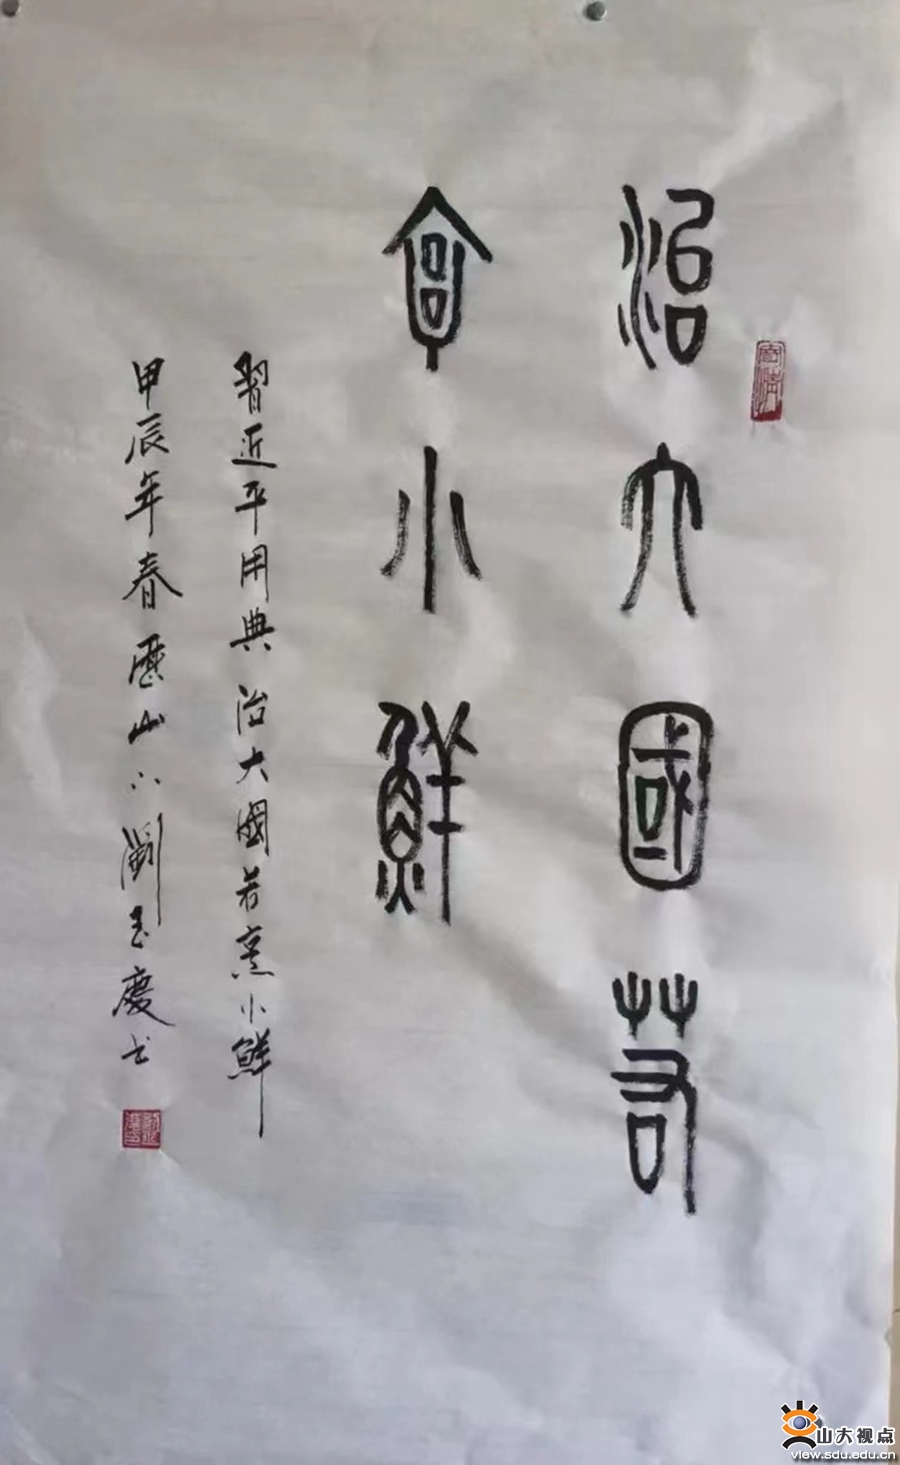 治大國若
亯小鮮
習近平用典治大國若烹小鮮
甲辰年春歷山下劉玉慶书
山大视点
view.sdu.edu.cn